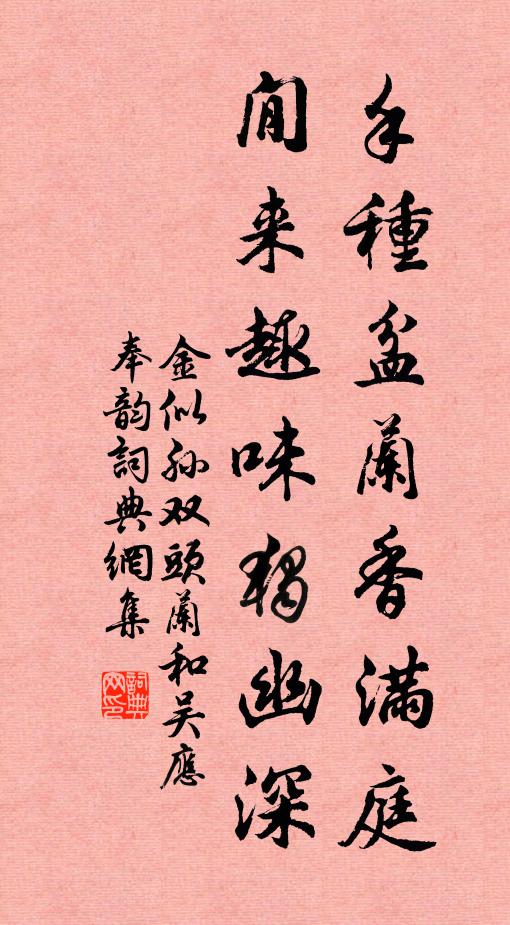 手種盆蘭香滿庭
閒来趣味獨幽深
金似孙双頭蘭和吴應
奉韵詞典網集
詞典网印